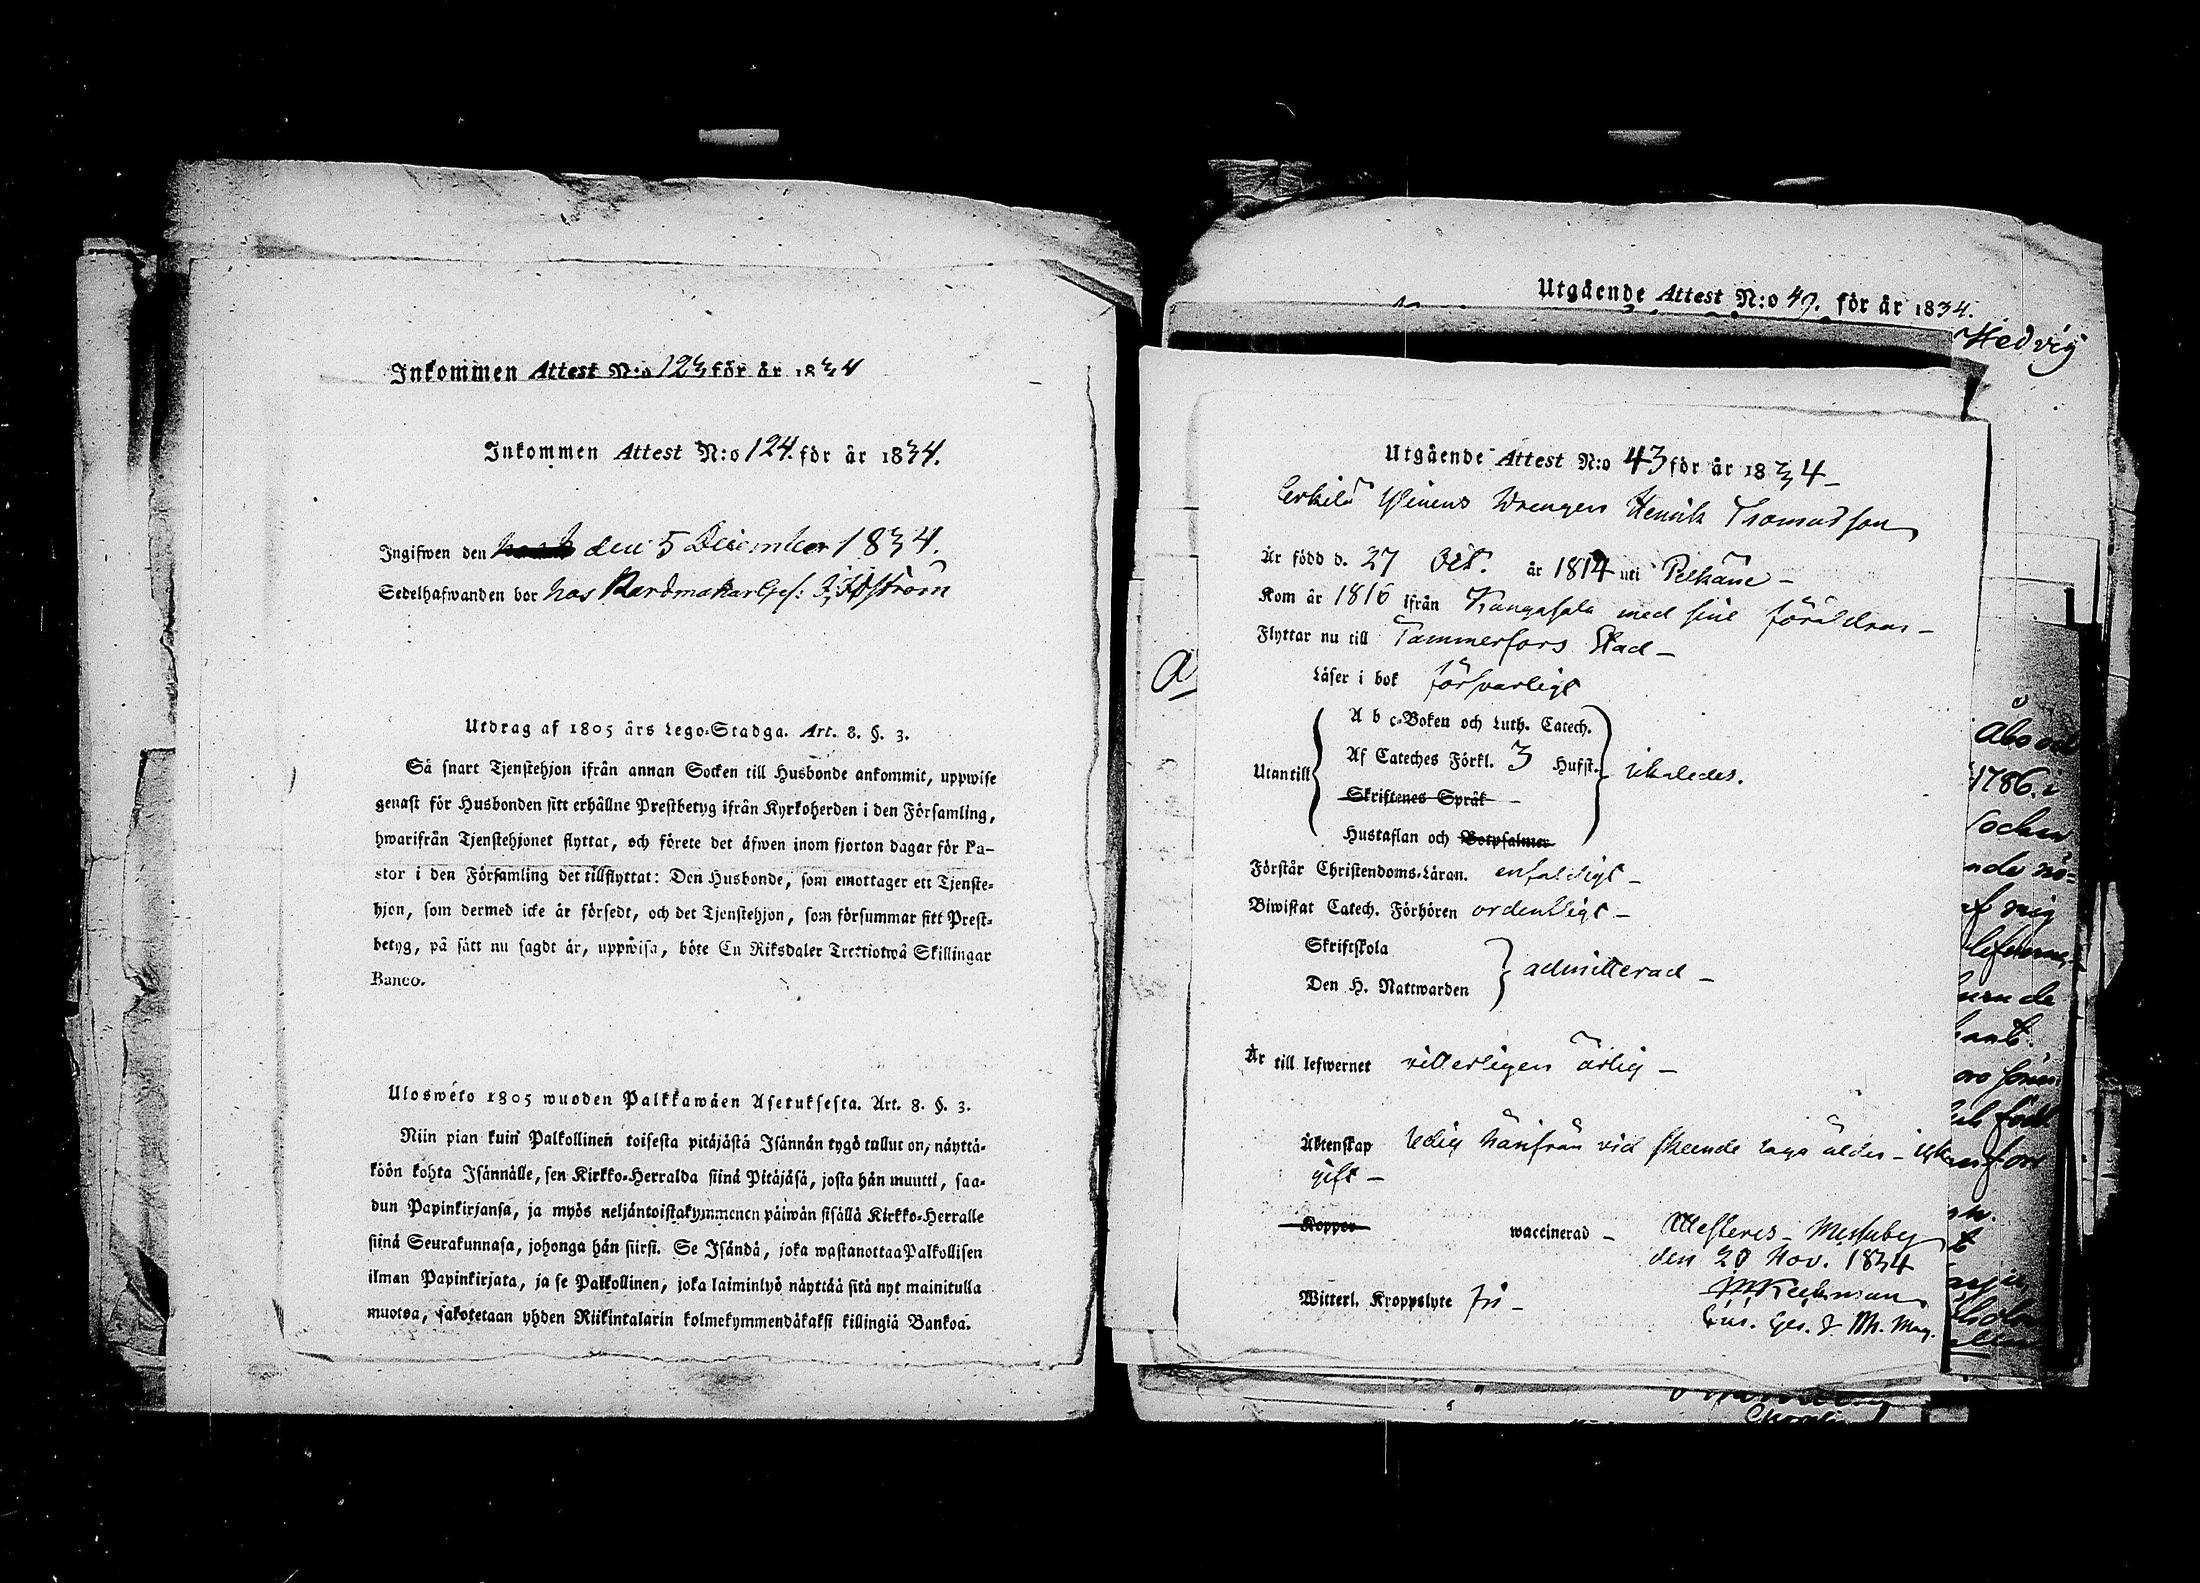 Inkommen Attest N:o 123 för år 1834
Inkommen Attest N:o 124. för år 1834.
Ingifwen den den 5 December 1834.
Sedelhafwanden bor hos
Utdrag af 1805 års Lego-Stadga. Art. 8. §. 3.
Så snart Tjenstehjon ifrån annan Socken till Husbonde ankommit, uppwise
genast för Husbonden sitt erhållne Prestbetyg ifrån Kyrkoherden i den Församling,
hwarifrån Tjenstehjonet flyttat, och förete det äfwen inom fjorton dagar för Pa-
stor i den Församling det tillflyttat: Den Husbonde, som emottager ett Tjenste-
hjon, som dermed icke är försedt, och det Tjenstehjon, som försummar sitt Prest-
betyg, på sätt nu sagdt är, uppwisa, böte En Riksdaler Trettiotwå Skillingar
Banco.
Uloswéto 1805 wuoden Palkkawäen Asetuksesta. Art. 8. §. 3.
Niin pian kuin Palkollinen toisesta pitäjästä Isännän tygö tullut on, näyttä-
köön kohta Isännälle, sen Kirkko-Herralda siinä Pitäjäsä, josta hän muutti, saa-
dun Papinkirjansa, ja myös neljäntoistakymmenen päiwän sisällä Kirkko-Herralle
siinä Seurakunnasa, johonga hän siirsi. Se Isändä, joka wastanottaa Palkollisen
ilman Papinkirjata, ja se Palkollinen, joka laiminlyö näyttää sitä nyt mainitulla
muotoa, sakotetaan yhden Riikintalarin kolmekymmendäkaksi killingiä Bankoa.
Utgående Attest N:o 49. för år 1834.
Hedvig
Utgående Attest N:o 43 för år 1834
Erkilä Drengen Henrik Thomasson
Är född d. 27 Oct. år 1814 uti Pelkäne
Kom år 1816 ifrån Kangasala med sine föräldrar
Flyttar nu till Tammerfors Stad
Läser i bok försvarligt
A b c-Boken och Luth. Catech.
Af Cateches Förkl. 3 Hufst.
Utantill likaledes.
Skriftenes Språk
Hustaflan och Botpsalmer
Förstår Christendoms-Läran. enfaldigt
Biwistat Catech. Förhören ordentligt
Skriftskola
Den H. Nattwarden admitterad
Är till lefwernet vitterligen ärlig
Äktenskap ledig härifrån vid skeende laga ålder
gift
Koppor waccinerad Attesteras Messuby
den 20 Nov. 1834
Witterl. Kroppslyte fri